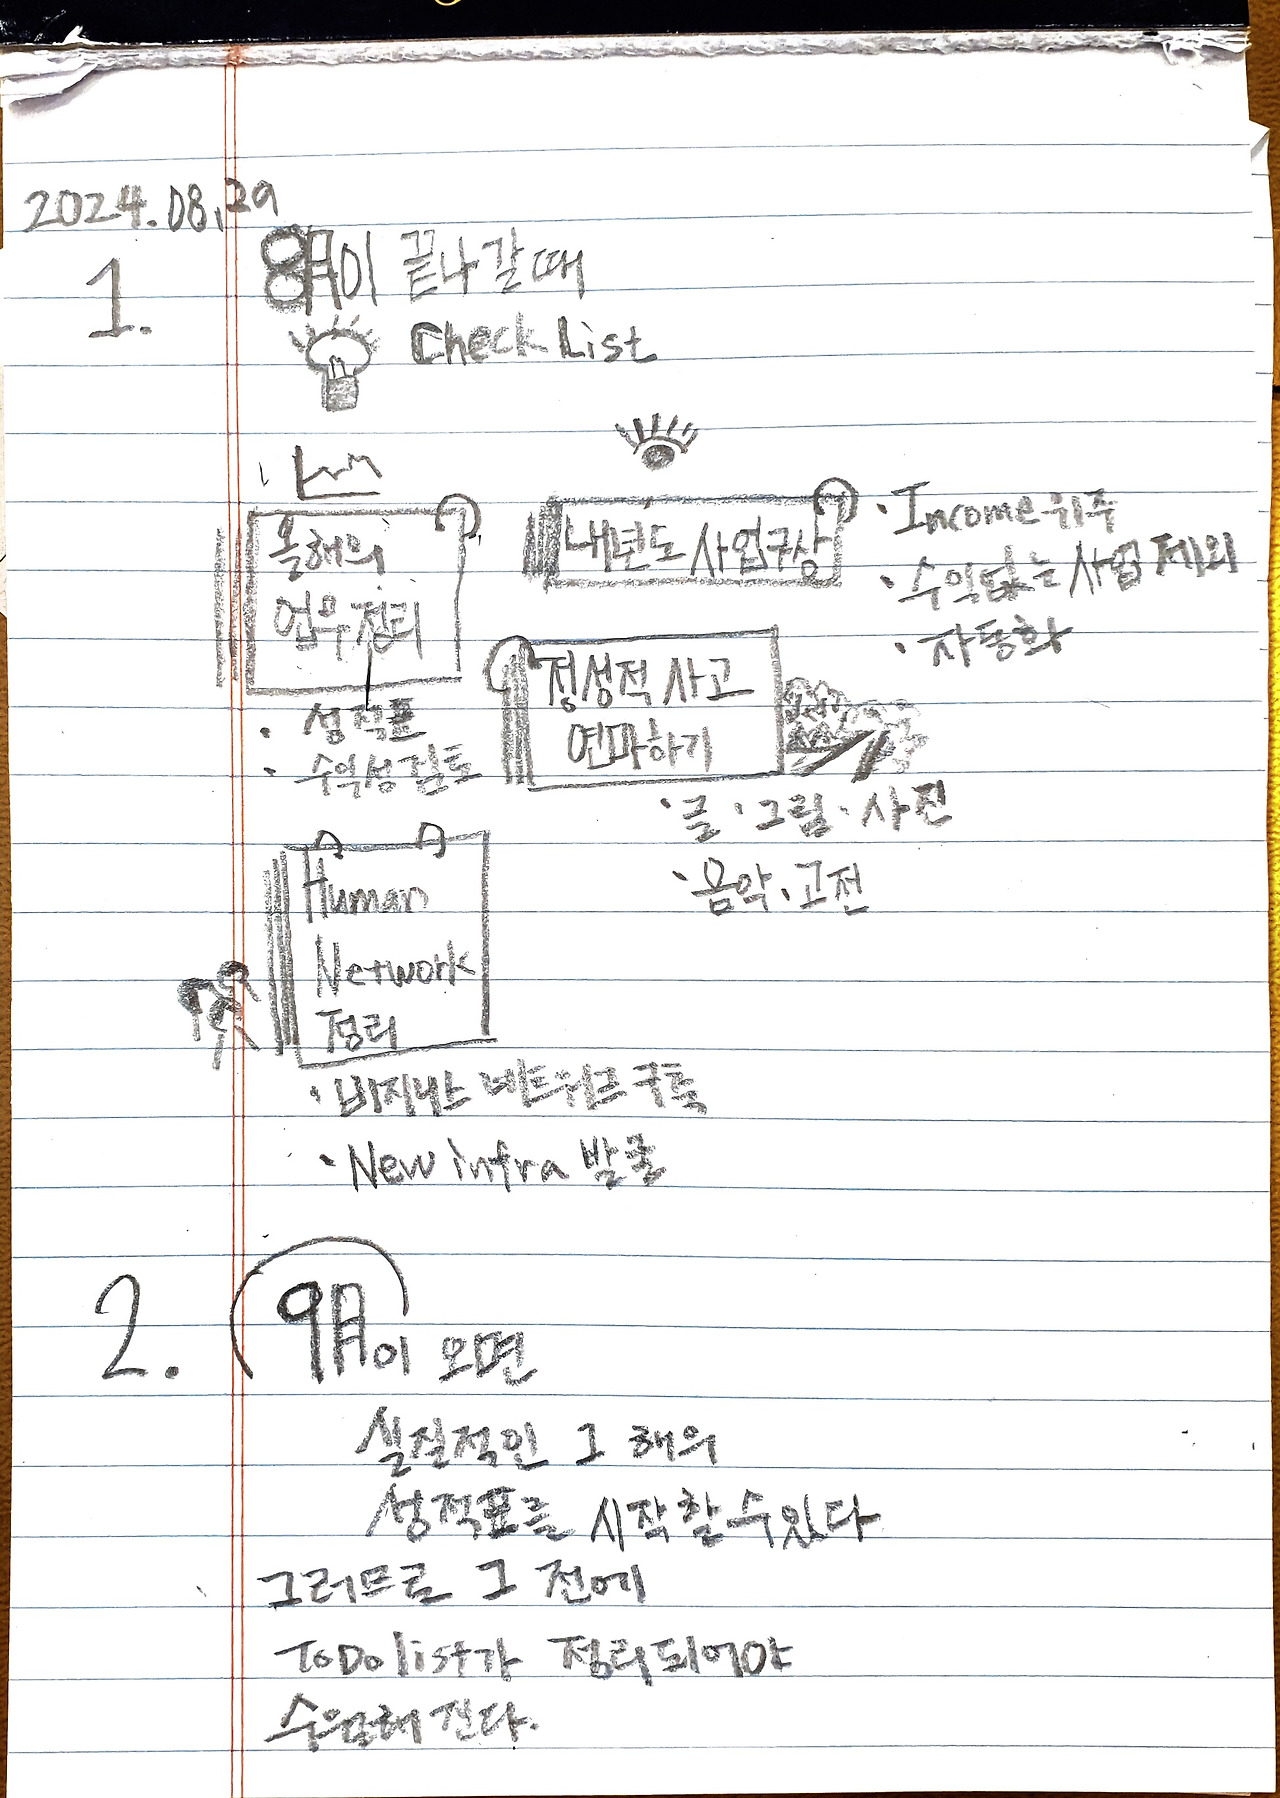 2024.08.29
1.
8月이 끝나갈때
Check List
올해의
업무정리
· 성적표
· 수익성 검토
내년도 사업구상
· Income 위주
· 수익없는 사업 제외
· 자동화
정성적 사고
연마하기
· 글 · 그림 · 사진
· 음악 · 고전
Human
Network
정리
· 비지니스 네트워크 구축
· New infra 발굴
2.
9月이 오면
실질적인 그 해의
성적표를 시작할수있다
그러므로 그 전에
ToDo list가 정리되어야
수월해진다.